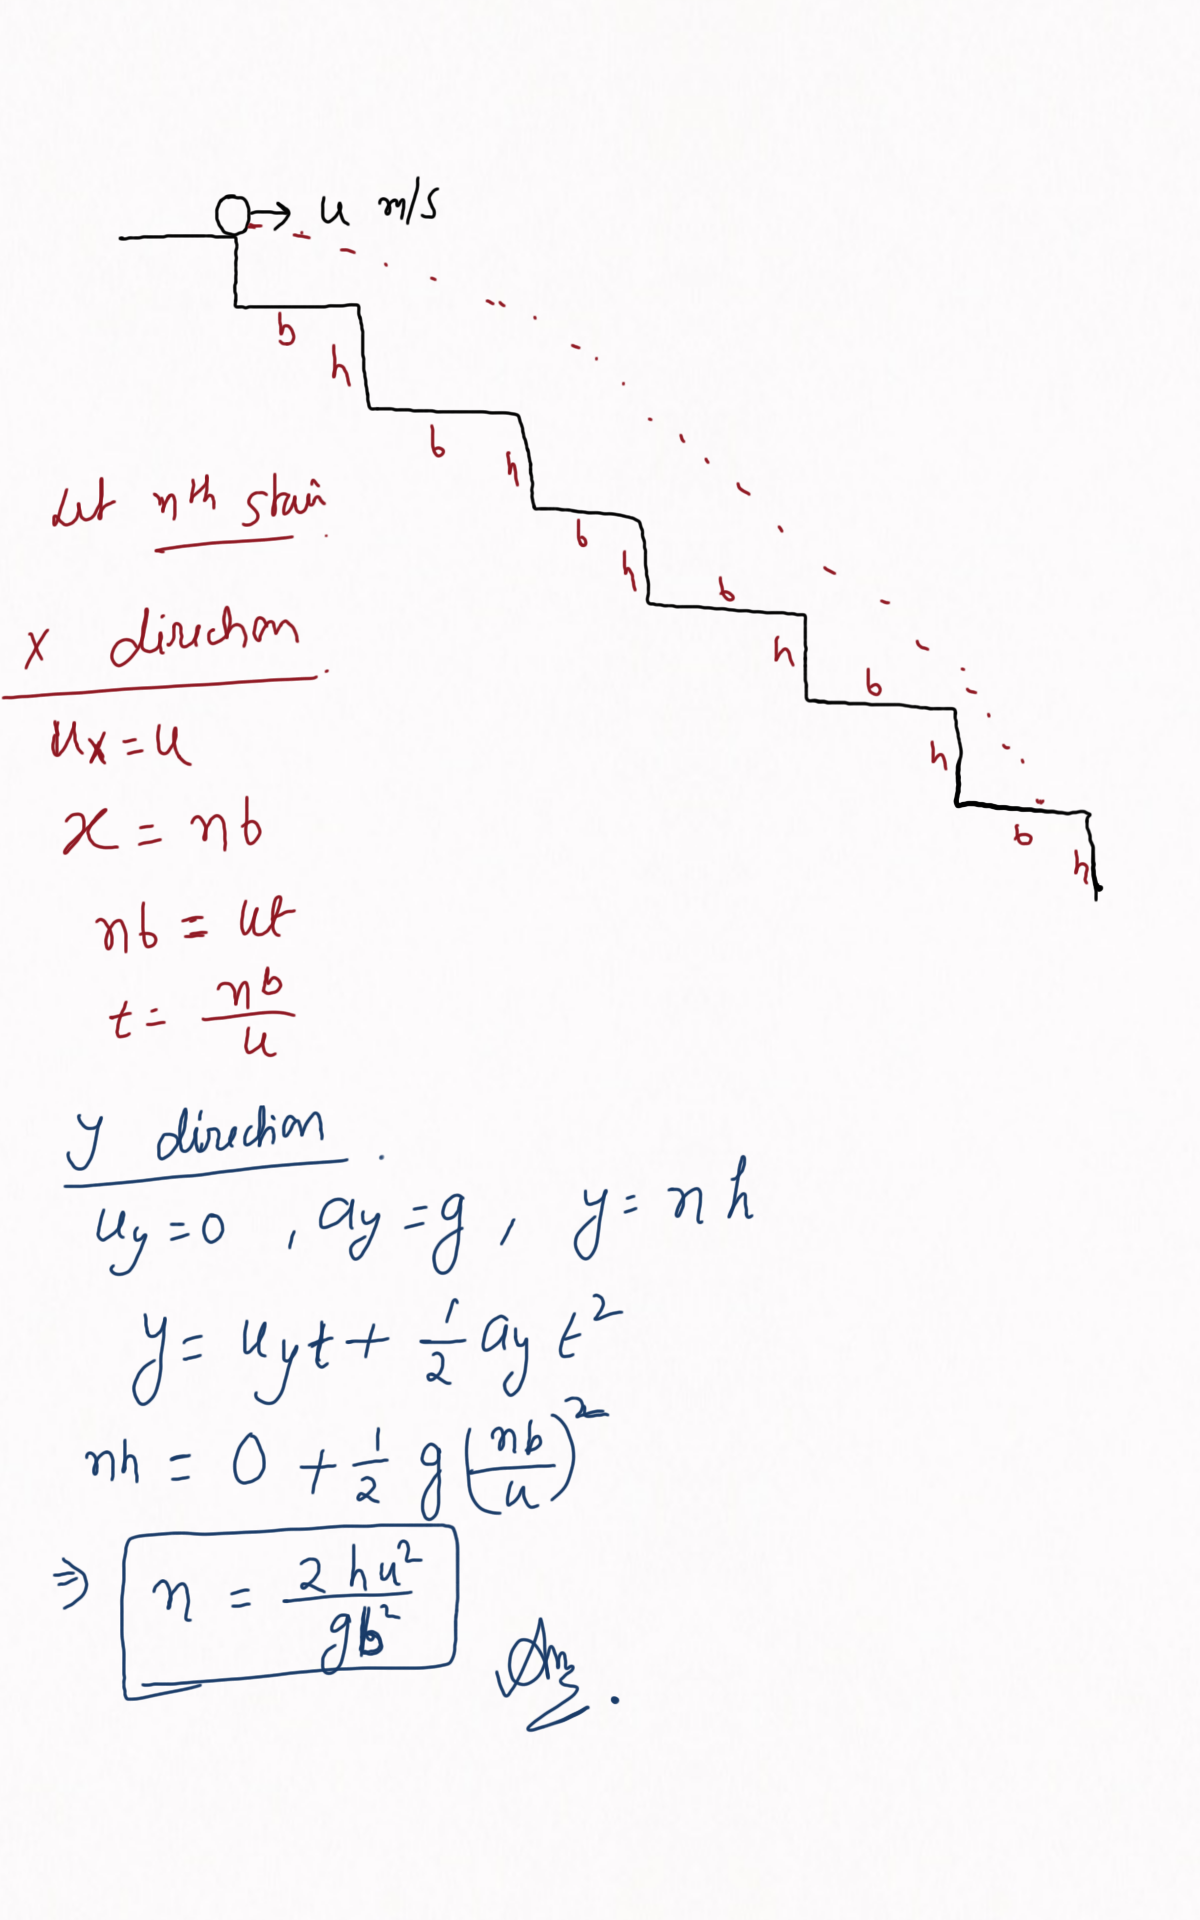 u m/s
b
h
b
h
b
h
b
h
b
h
b
h
Let nth stair
X direction
ux = u
x = nb
nb = ut
t = nb/u
y direction
uy = 0 , ay = g , y = nh
y = uyt + 1/2 ay t²
nh = 0 + 1/2 g (nb/u)²
⇒ n = 2hu²/gb²
Ans.